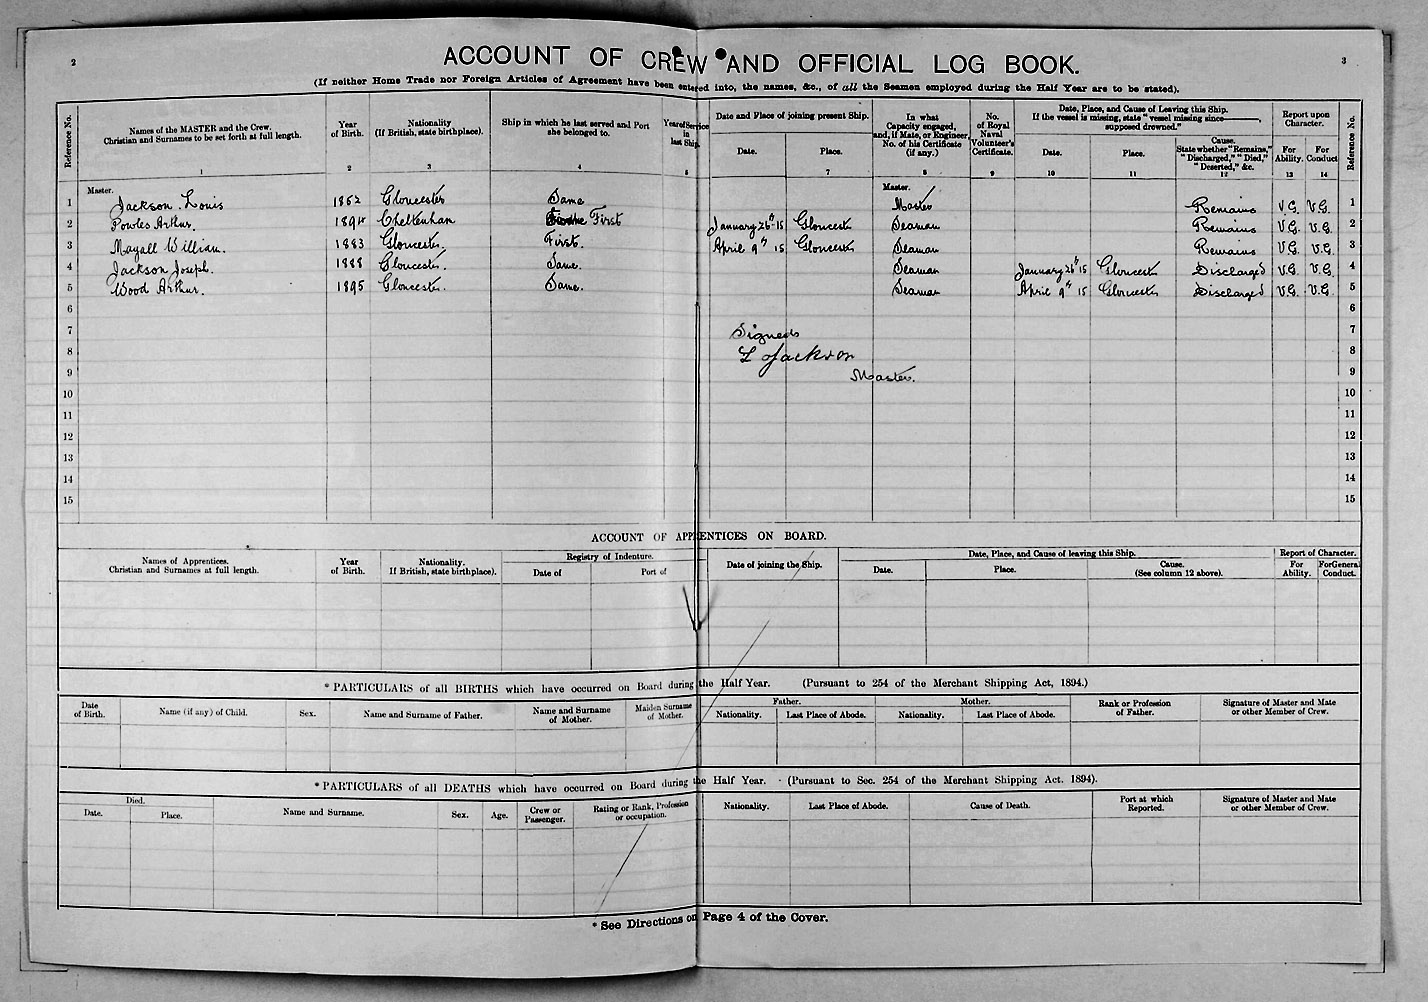 2
3
ACCOUNT OF CREW AND OFFICIAL LOG BOOK.
(If neither Home Trade nor Foreign Articles of Agreement have been entered into, the names, &c., of all the Seamen employed during the Half Year are to be stated).
Reference No.
Names of the MASTER and the Crew.
Christian and Surnames to be set forth at full length.
1
Year
of Birth.
2
Nationality
(If British, state birthplace).
3
Ship in which he last served and Port
she belonged to.
4
Year of Service
in
last Ship.
5
Date and Place of joining present Ship.
Date.
Place.
7
In what
Capacity engaged,
and, if Mate, or Engineer,
No. of his Certificate
(if any.)
8
No.
of Royal
Naval
Volunteer's
Certificate.
9
Date, Place, and Cause of Leaving this Ship.
If the vessel is missing, state "vessel missing since———,
supposed drowned."
Date.
10
Place.
11
Cause.
State whether "Remains,"
"Discharged," "Died,"
"Deserted," &c.
12
Report upon
Character.
For
Ability.
13
For
Conduct
14
Reference No.
Master.
Master.
1 Jackson. Louis 1862 Gloucester Same Master Remains V.G. V.G. 1
2 Powles Arthur. 1894 Cheltenham First January 26th 15 Gloucester Seaman Remains V.G. V.G. 2
3 Mayall William. 1883 Gloucester. First. April 9th 15 Gloucester Seaman Remains V.G. V.G. 3
4 Jackson Joseph. 1888 Gloucester. Same. Seaman January 26th 15 Gloucester Discharged V.G. V.G. 4
5 Wood Arthur. 1895 Gloucester. Same. Seaman April 9th 15 Gloucester Discharged V.G. V.G. 5
6 6
7 Signed 7
8 L Jackson 8
9 Master. 9
10 10
11 11
12 12
13 13
14 14
15 15
ACCOUNT OF APPRENTICES ON BOARD.
Names of Apprentices.
Christian and Surnames at full length.
Year
of Birth.
Nationality.
If British, state birthplace).
Registry of Indenture.
Date of
Port of
Date of joining the Ship.
Date, Place, and Cause of leaving this Ship.
Date.
Place.
Cause.
(See column 12 above).
Report of Character.
For
Ability.
For General
Conduct.
* PARTICULARS of all BIRTHS which have occurred on Board during the Half Year. (Pursuant to 254 of the Merchant Shipping Act, 1894.)
Date
of Birth.
Name (if any) of Child.
Sex.
Name and Surname of Father.
Name and Surname
of Mother.
Maiden Surname
of Mother.
Father.
Nationality.
Last Place of Abode.
Mother.
Nationality.
Last Place of Abode.
Rank or Profession
of Father.
Signature of Master and Mate
or other Member of Crew.
* PARTICULARS of all DEATHS which have occurred on Board during the Half Year. (Pursuant to Sec. 254 of the Merchant Shipping Act. 1894).
Died.
Date.
Place.
Name and Surname.
Sex.
Age.
Crew or
Passenger.
Rating or Rank, Profession
or occupation.
Nationality.
Last Place of Abode.
Cause of Death.
Port at which
Reported.
Signature of Master and Mate
or other Member of Crew.
* See Directions on Page 4 of the Cover.